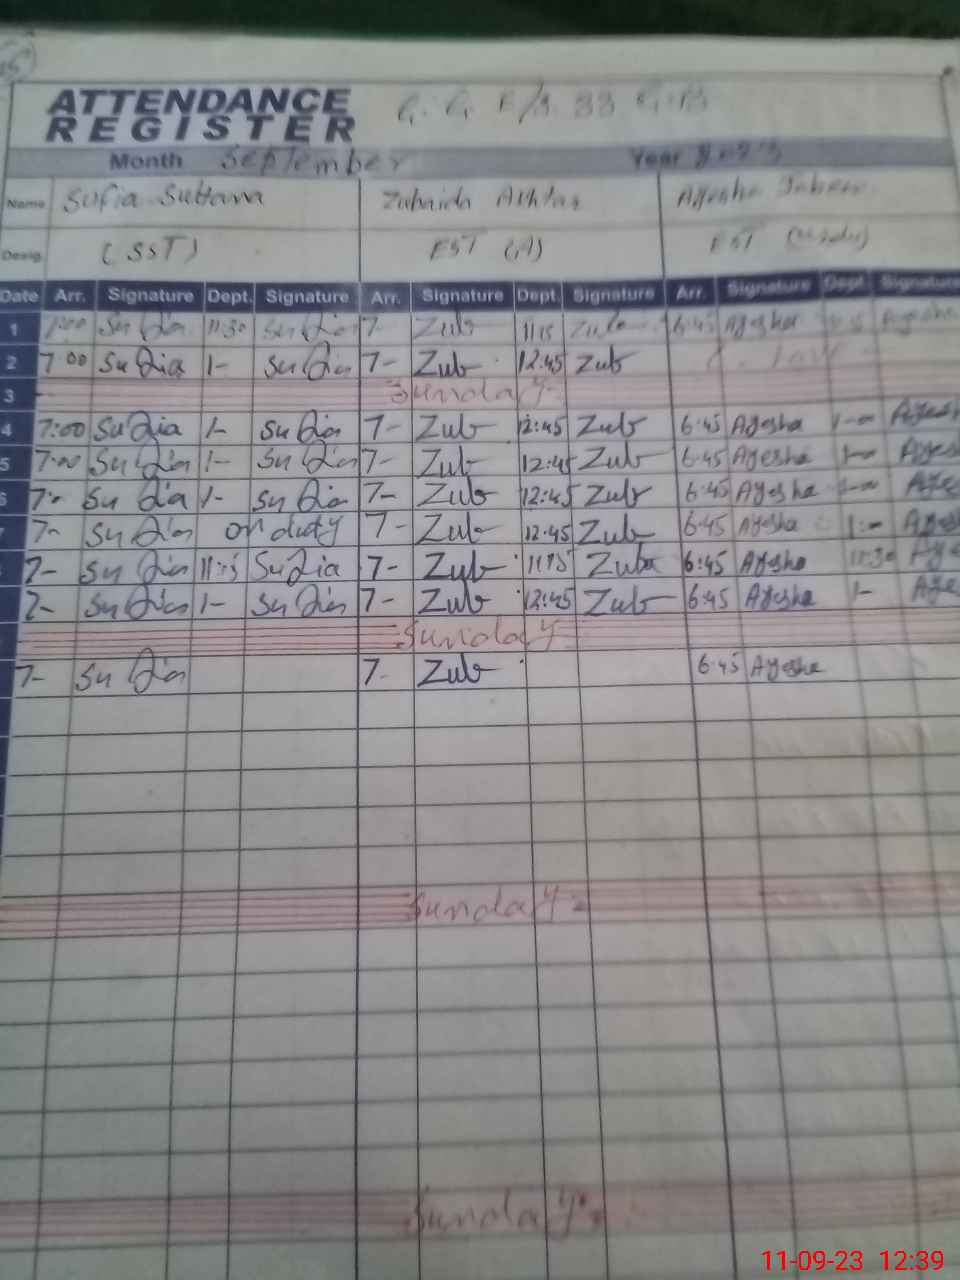 ATTENDANCE
REGISTER
Month September Year 2023
Name Sofia Sultana Zubaida Akhtar Ayesha
Desig. (SST) EST (A) EST
Date Arr. Signature Dept. Signature Arr. Signature Dept. Signature Arr. Signature Dept. Signature
1 7:00 Sufia 11:30 Sufia 7- Zub 1115 Zub 6:45 Ayesha
2 7:00 Sufia 1- Sufia 7- Zub 12:45 Zub
3 Sunday
4 7:00 Sufia 1- Sufia 7- Zub 12:45 Zub 6:45 Ayesha 1-00
5 7:00 Sufia 1- Sufia 7- Zub 12:45 Zub 6:45 Ayesha 1-00
6 7- Sufia 1- Sufia 7- Zub 12:45 Zub 6:45 Ayesha 1-00
7- Sufia on duty 7- Zub 12:45 Zub 6:45 Ayesha 1:00
7- Sufia 11:15 Sufia 7- Zub 11:15 Zuba 6:45 Ayesha 11:30
7- Sufia 1- Sufia 7- Zub 12:45 Zub 6:45 Ayesha 1-
Sunday
7- Sufia 7- Zub 6:45 Ayesha
Sunday
Sunday
11-09-23 12:39